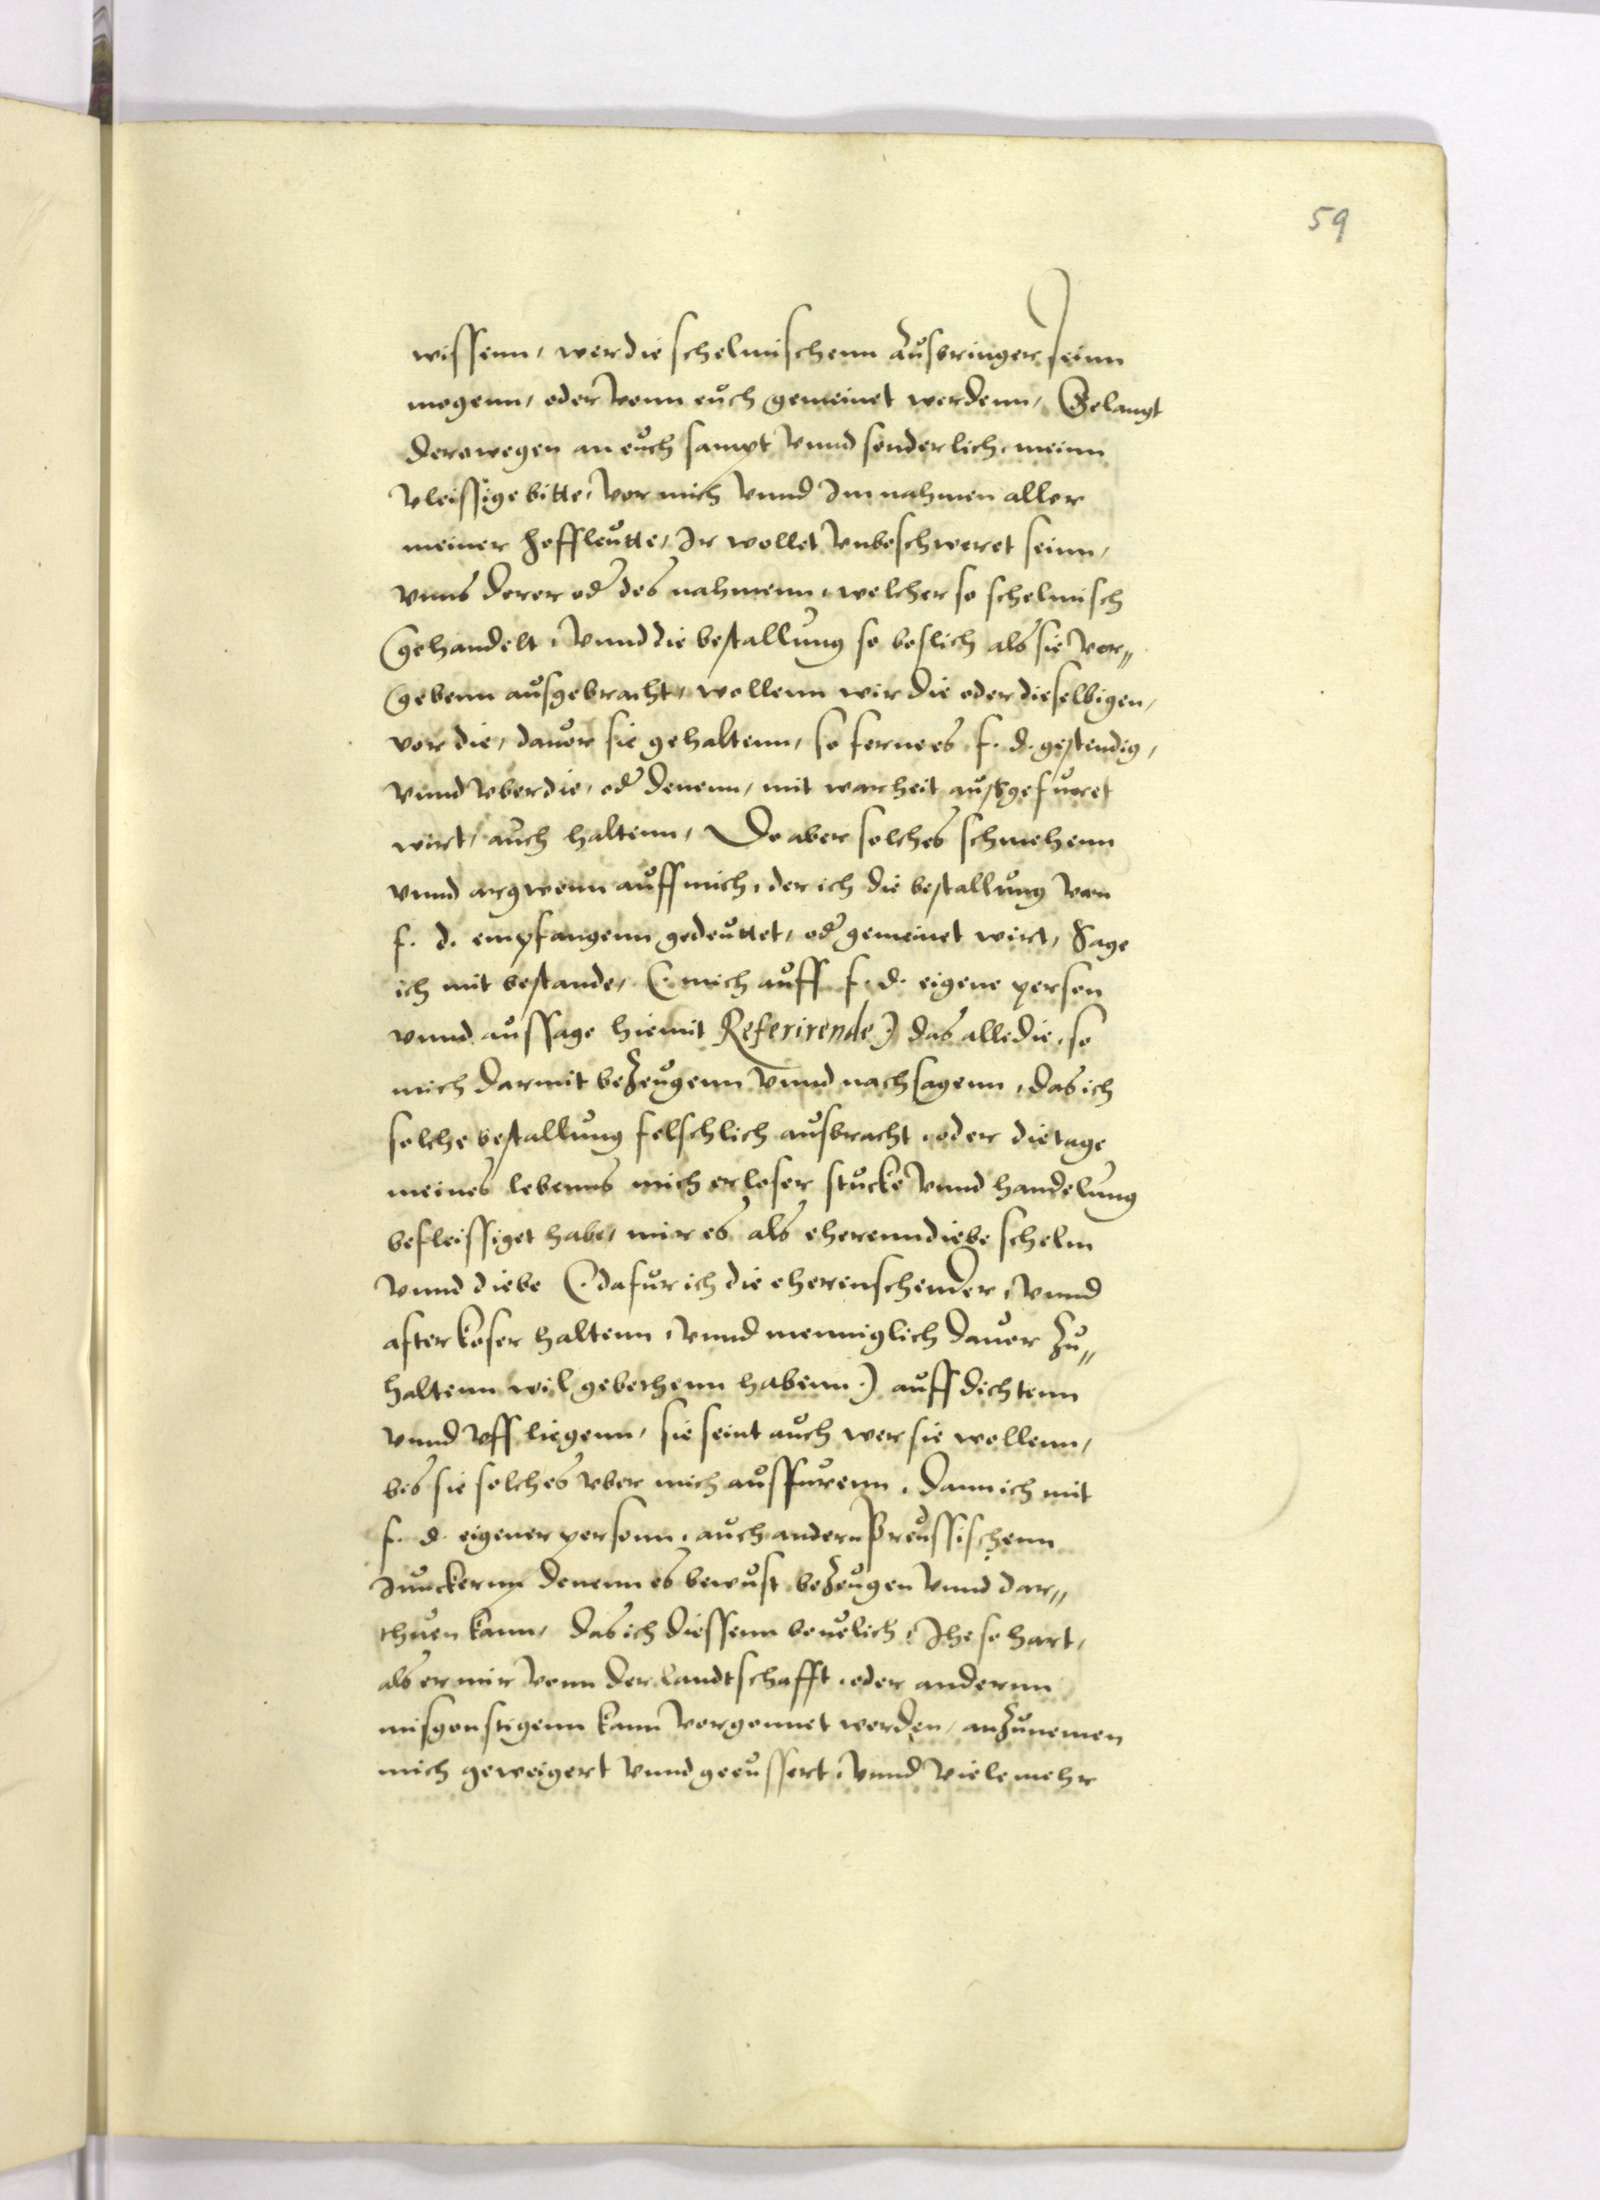 59
wissenn, wer die schelmischenn Ausbringer seinn
mogenn, oder vonn euch gemeinet werdenn, Gelangt
derowegen an euch sampt vnnd sonderlich, meinn
vleissige bitte, vor mich vnnd Im nahmen aller
meiner hoffleutte, Ir wollet vnbeschweret seinn,
vnns derer od' des nahmenn, welcher so schelmisch
gehandelt, vnnd die bestallung so boslich als sie vor"
gebenn ausgebracht, wollenn wir die oder dieselbigen,
vor die, dauor sie gehaltenn, so ferne es f. d. gestendig,
vnnd vber die, od' denenn, mit warheit ausgefuret
wirt, auch haltenn, Do aber solches schmehenn
vnnd argwonn auff mich, der ich die bestallung von
f. d. empfangenn gedeuttet, od' gemeinet wirt, Sage
ich mit bestande, (. mich auff f. d. eigene person
vnnd aussage hiemit Referirende.) das alle die, so
mich darmit bezeugenn vnnd nachsagenn, das ich
solche bestallung felschlich ausbracht, oder die tage
meines lebenns mich erloser stucke vnnd handelung
befleissiget habe, mir es als eherenndiebe schelm
vnnd diebe (. dafur ich die eherenschender, vnnd
afterkoser haltenn, vnnd menniglich dauor zu"
haltenn wil gebethenn habenn.) auff dichtenn
vnnd vff liegenn, sie seint auch wer sie wollenn,
bis sie solches vber mich ausfurenn, Dann ich mit
f. d. eigener personn, auch andern Preussischenn
Iunckernn denenn es bewust bezeugen vnnd dar"
thuen kann, das ich diessenn beuelich, Ihe so hart,
als er mir vonn der landtschafft, oder andernn
misgonstigenn kann vorgonnet werden, anzunemen
mich geweigert vnnd geeussert, vnnd viele mehr